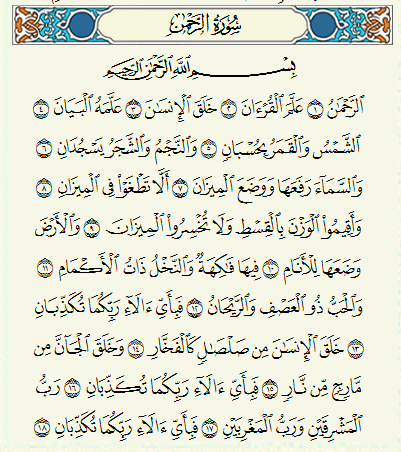 سُورَةُ الرَّحْمَٰن
بِسْمِ ٱللَّهِ ٱلرَّحْمَٰنِ ٱلرَّحِيمِ
ٱلرَّحْمَٰنُ ١ عَلَّمَ ٱلْقُرْءَانَ ٢ خَلَقَ ٱلْإِنسَٰنَ ٣ عَلَّمَهُ ٱلْبَيَانَ ٤
ٱلشَّمْسُ وَٱلْقَمَرُ بِحُسْبَانٍ ٥ وَٱلنَّجْمُ وَٱلشَّجَرُ يَسْجُدَانِ ٦
وَٱلسَّمَآءَ رَفَعَهَا وَوَضَعَ ٱلْمِيزَانَ ٧ أَلَّا تَطْغَوْا۟ فِى ٱلْمِيزَانِ ٨
وَأَقِيمُوا۟ ٱلْوَزْنَ بِٱلْقِسْطِ وَلَا تُخْسِرُوا۟ ٱلْمِيزَانَ ٩ وَٱلْأَرْضَ
وَضَعَهَا لِلْأَنَامِ ١٠ فِيهَا فَٰكِهَةٌ وَٱلنَّخْلُ ذَاتُ ٱلْأَكْمَامِ ١١
وَٱلْحَبُّ ذُو ٱلْعَصْفِ وَٱلرَّيْحَانُ ١٢ فَبِأَىِّ ءَالَآءِ رَبِّكُمَا تُكَذِّبَانِ
١٣ خَلَقَ ٱلْإِنسَٰنَ مِن صَلْصَٰلٍ كَٱلْفَخَّارِ ١٤ وَخَلَقَ ٱلْجَآنَّ مِن
مَّارِجٍ مِّن نَّارٍ ١٥ فَبِأَىِّ ءَالَآءِ رَبِّكُمَا تُكَذِّبَانِ ١٦ رَبُّ
ٱلْمَشْرِقَيْنِ وَرَبُّ ٱلْمَغْرِبَيْنِ ١٧ فَبِأَىِّ ءَالَآءِ رَبِّكُمَا تُكَذِّبَانِ ١٨